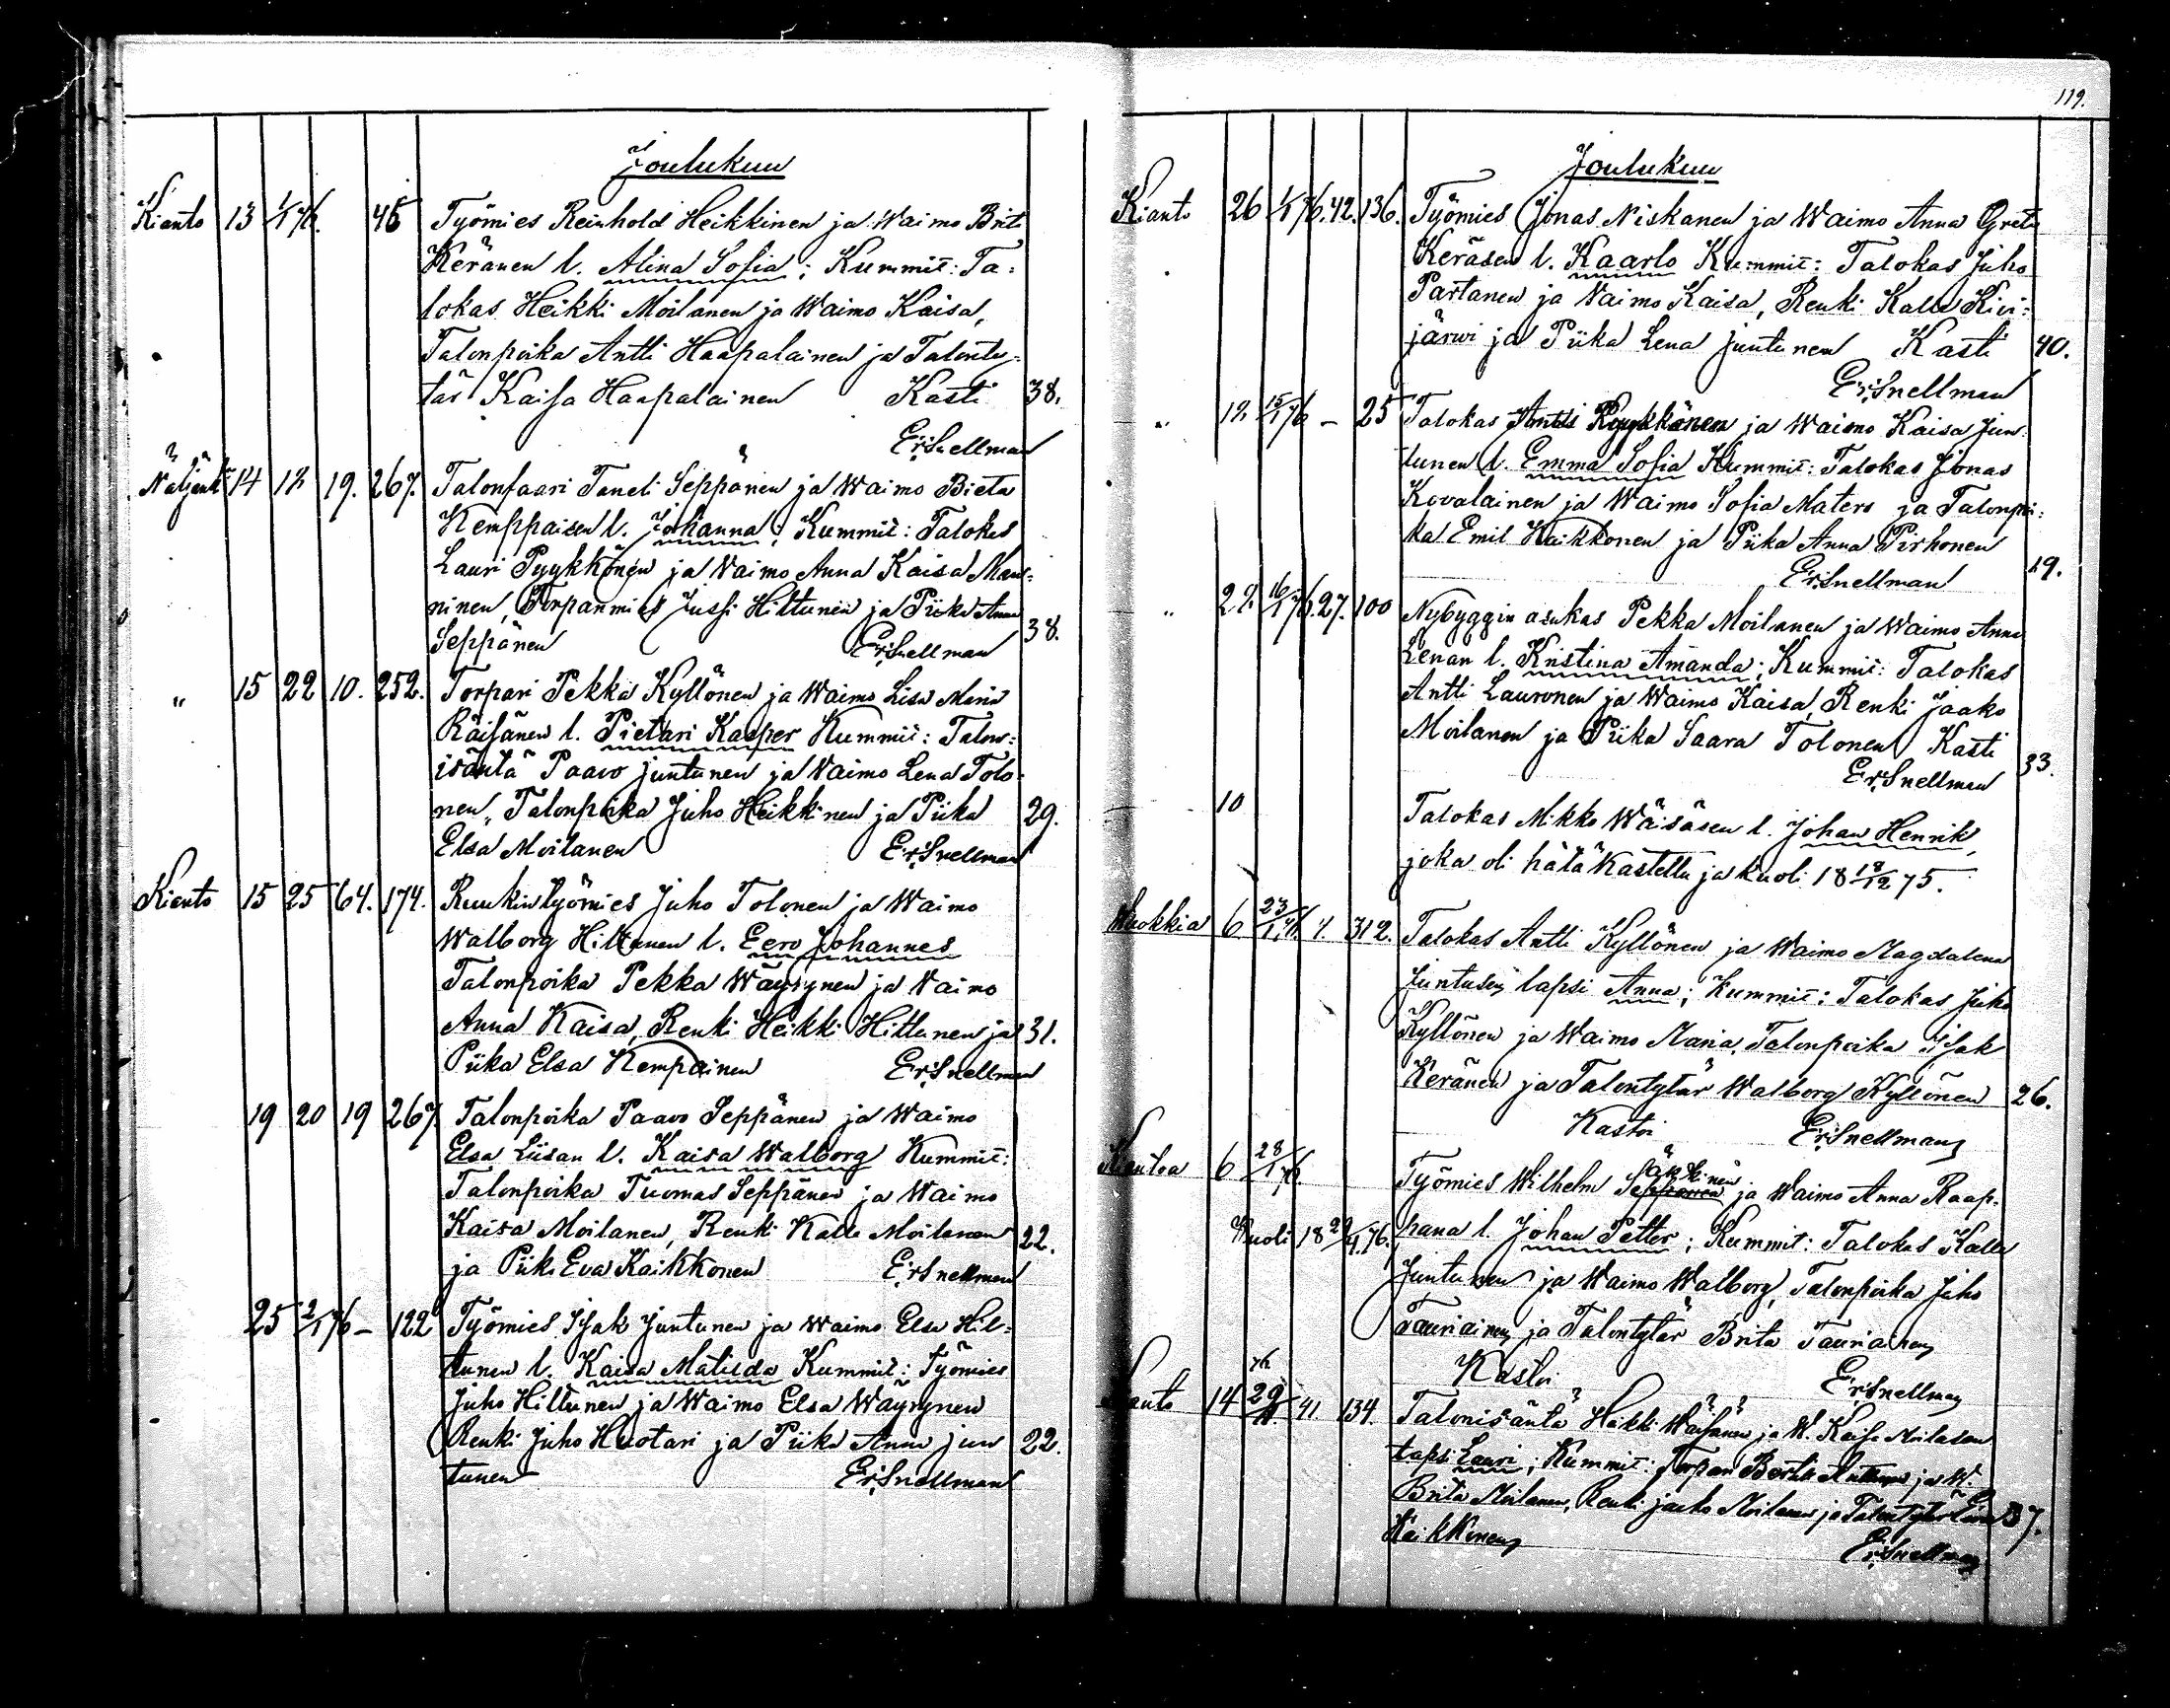 Joulukuu
Kianto 13 1/1 76. 45 Työmies Reinhold Heikkinen ja Waimo Brita
Keränen l. Alina Sofia; Kummit: Ta-
lokas Heikki Moilanen ja Waimo Kaisa,
Talonpoika Antti Haapalainen ja Talonty-
tär Kaisa Haapalainen Kasti 38.
Er. Snellman
Näljänk 14 18 19. 267. Talonfaari Taneli Seppänen ja Waimo Bieta
Kemppaisen l. Johanna; Kummit: Talokas
Lauri Pyykkönen ja Waimo Anna Kaisa Man-
ninen, Torpanmies Jussi Hiltunen ja Piika Anna
Seppänen Er. Snellman 38.
" 15 22 10. 252. Torpari Pekka Kyllönen ja Waimo Lisa Maria
Räisänen l. Pietari Kasper Kummit: Talon-
isäntä Paavo Juntunen ja Waimo Lena Tolo-
nen, Talonpoika Juho Heikkinen ja Piika 29.
Elsa Moilanen Er. Snellman
Kianto 15 25 64. 174. Ruukin työmies Juho Tolonen ja Waimo
Walborg Hiltunen l. Eero Johannes
Talonpoika Pekka Wäyrynen ja Waimo
Anna Kaisa, Renki Heikki Hiltunen ja 31.
Piika Elsa Kempainen Er. Snellman
19 20 19 267. Talonpoika Paavo Seppänen ja Waimo
Elsa Liisan l. Kaisa Walborg Kummit:
Talonpoika Tuomas Seppänen ja Waimo
Kaisa Moilanen, Renki Kalle Moilanen 22.
ja Piik. Eva Kaikkonen Er. Snellman
25 2/1 76 – 122 Työmies Isak Juntunen ja Waimo Elsa Hil-
tunen l. Kaisa Matilda Kummit: Työmies
Juho Hiltunen ja Waimo Elsa Wäyrynen
Renki Juho Huotari ja Piika Anna Jun 22.
tunen Er. Snellman
119.
Joulukuu
Kianto 26 1/1 76. 42. 136. Työmies Jonas Niskanen ja Waimo Anna Greta
Keräsen l. Kaarlo Kummit: Talokas Juho
Partanen ja Waimo Kaisa, Renki Kalle Kivi-
järwi ja Piika Lena Juntunen Kasti 40.
Er. Snellman
" 12 15/1 76 – 25 Talokas Antti Pyykkönen ja Waimo Kaisa Jun-
tunen l. Emma Sofia Kummit: Talokas Jonas
Kovalainen ja Waimo Sofia Matero ja Talonpoi-
ka Emil Kaikkonen ja Piika Anna Pirhonen
Er. Snellman 19.
" 22. 16/1 76. 27. 100 Nybyggin asukas Pekka Moilanen ja Waimo Anna
Lenan l. Kristina Amanda; Kummit: Talokas
Antti Lauronen ja Waimo Kaisa, Renki Jaako
Moilanen ja Piika Saara Tolonen Kasti 33.
Er. Snellman
10 Talokas Mikko Wäisäsen l. Johan Henrik,
joka oli hätäkastettu ja kuoli 18 18/12 75.
Wuokkia 6 23/1 76. 4. 312. Talokas Antti Kyllönen ja Waimo Magdalena
Juntusen lapsi Anna; Kummit: Talokas Juho
Kyllönen ja Waimo Maria, Talonpoika Isak
Keränen ja Talontytär Walborg Kyllönen 26.
Kastoi Er. Snellman
Kiantoa 6 28/1 76. Työmies Wilhelm Seppänen Särkinen ja Waimo Anna Raap-
Kuoli 18 /4 76. pana l. Johan Petter; Kummit: Talokas Kalle
Juntunen ja Waimo Walborg, Talonpoika Juho
Tauriainen ja Talontytär Brita Tauriainen
Kastoi Er. Snellman
Kianto 14 29 41. 134. Talonisäntä Heikki Wäisänen ja W. Kaisa Moilasen
lapsi Lauri; Kummit: Torpari ja W.
Brita Moilanen, Renki Jaako Moilanen ja Talontytär 37.
Kaikkonen Er. Snellman